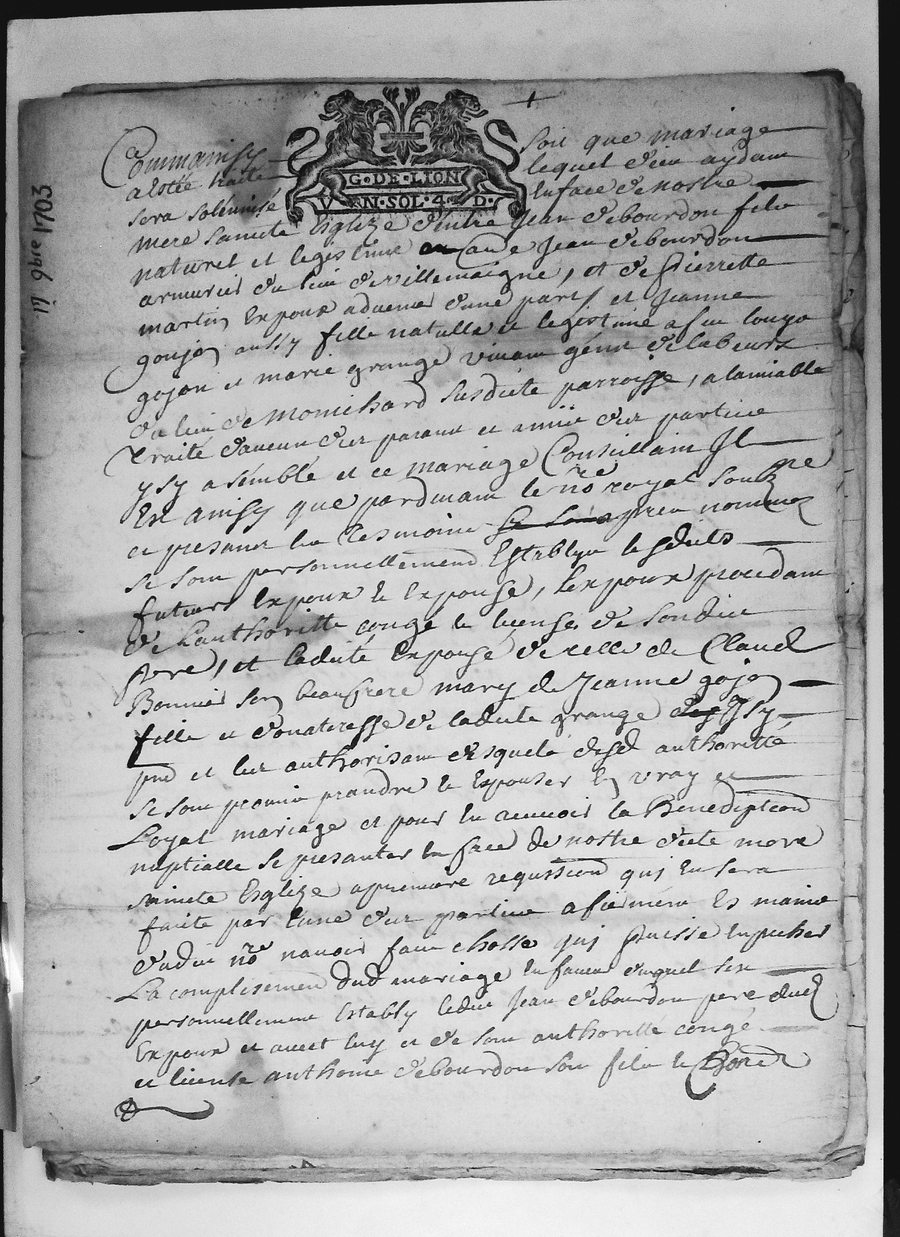 17 9bre 1703
G·DE·LION
V·N·SOL·4·D·
Comme ainsy soit que mariage
a esté traité lequel dieu aydant
sera solemnisé En face de nostre
mere saincte Esglize d'entre Jean debourdon fils
naturel et legistime Jean debourdon
armurier du lieu de villemaigne, et de pierrette
martin Expoux advenir d'une part, et Jeanne
goujon aussy fille naturelle et legistime a feu
gojon et marie grange vivant de labeurs
du lieu de Monichard susdicte parroisse, a lamiable
traité d'aucun des parans et amis des parties
ysy asemblé et ce mariage Conseillant Il
Est ainsy que pardevant le nore royal soubz.ne
et presans les tesmoins apres nommez
se sont personnellement Establys lesdits
futeurs Expoux et Expouse, l'expoux procedant
de Lauthoritté congé et license de sondit
pere, et ladite Expouse de celle de Claude
Bonnier son beaufrere mary de Jeanne gojon
fille et donateresse de ladite grange Isy
pnt et les authorisant desquels authoritté
se sont promis prandre et Expouser En vray et
Loyal mariage et pour En recevoir la Benediption
nuptialle se presanter En face de nostre dicte mere
saincte Esglize a premiere requission quy En sera
faite par l'une des parties afirmens Es mains
dudit nore navoir fait chosse quy puisse Enpecher
La complisement dud mariage En faveur duquel sest
personnellement Estably ledit Jean debourdon pere dud
Expoux et avec luy et de son authoritté congé
et license anthoine debourdon son fils et